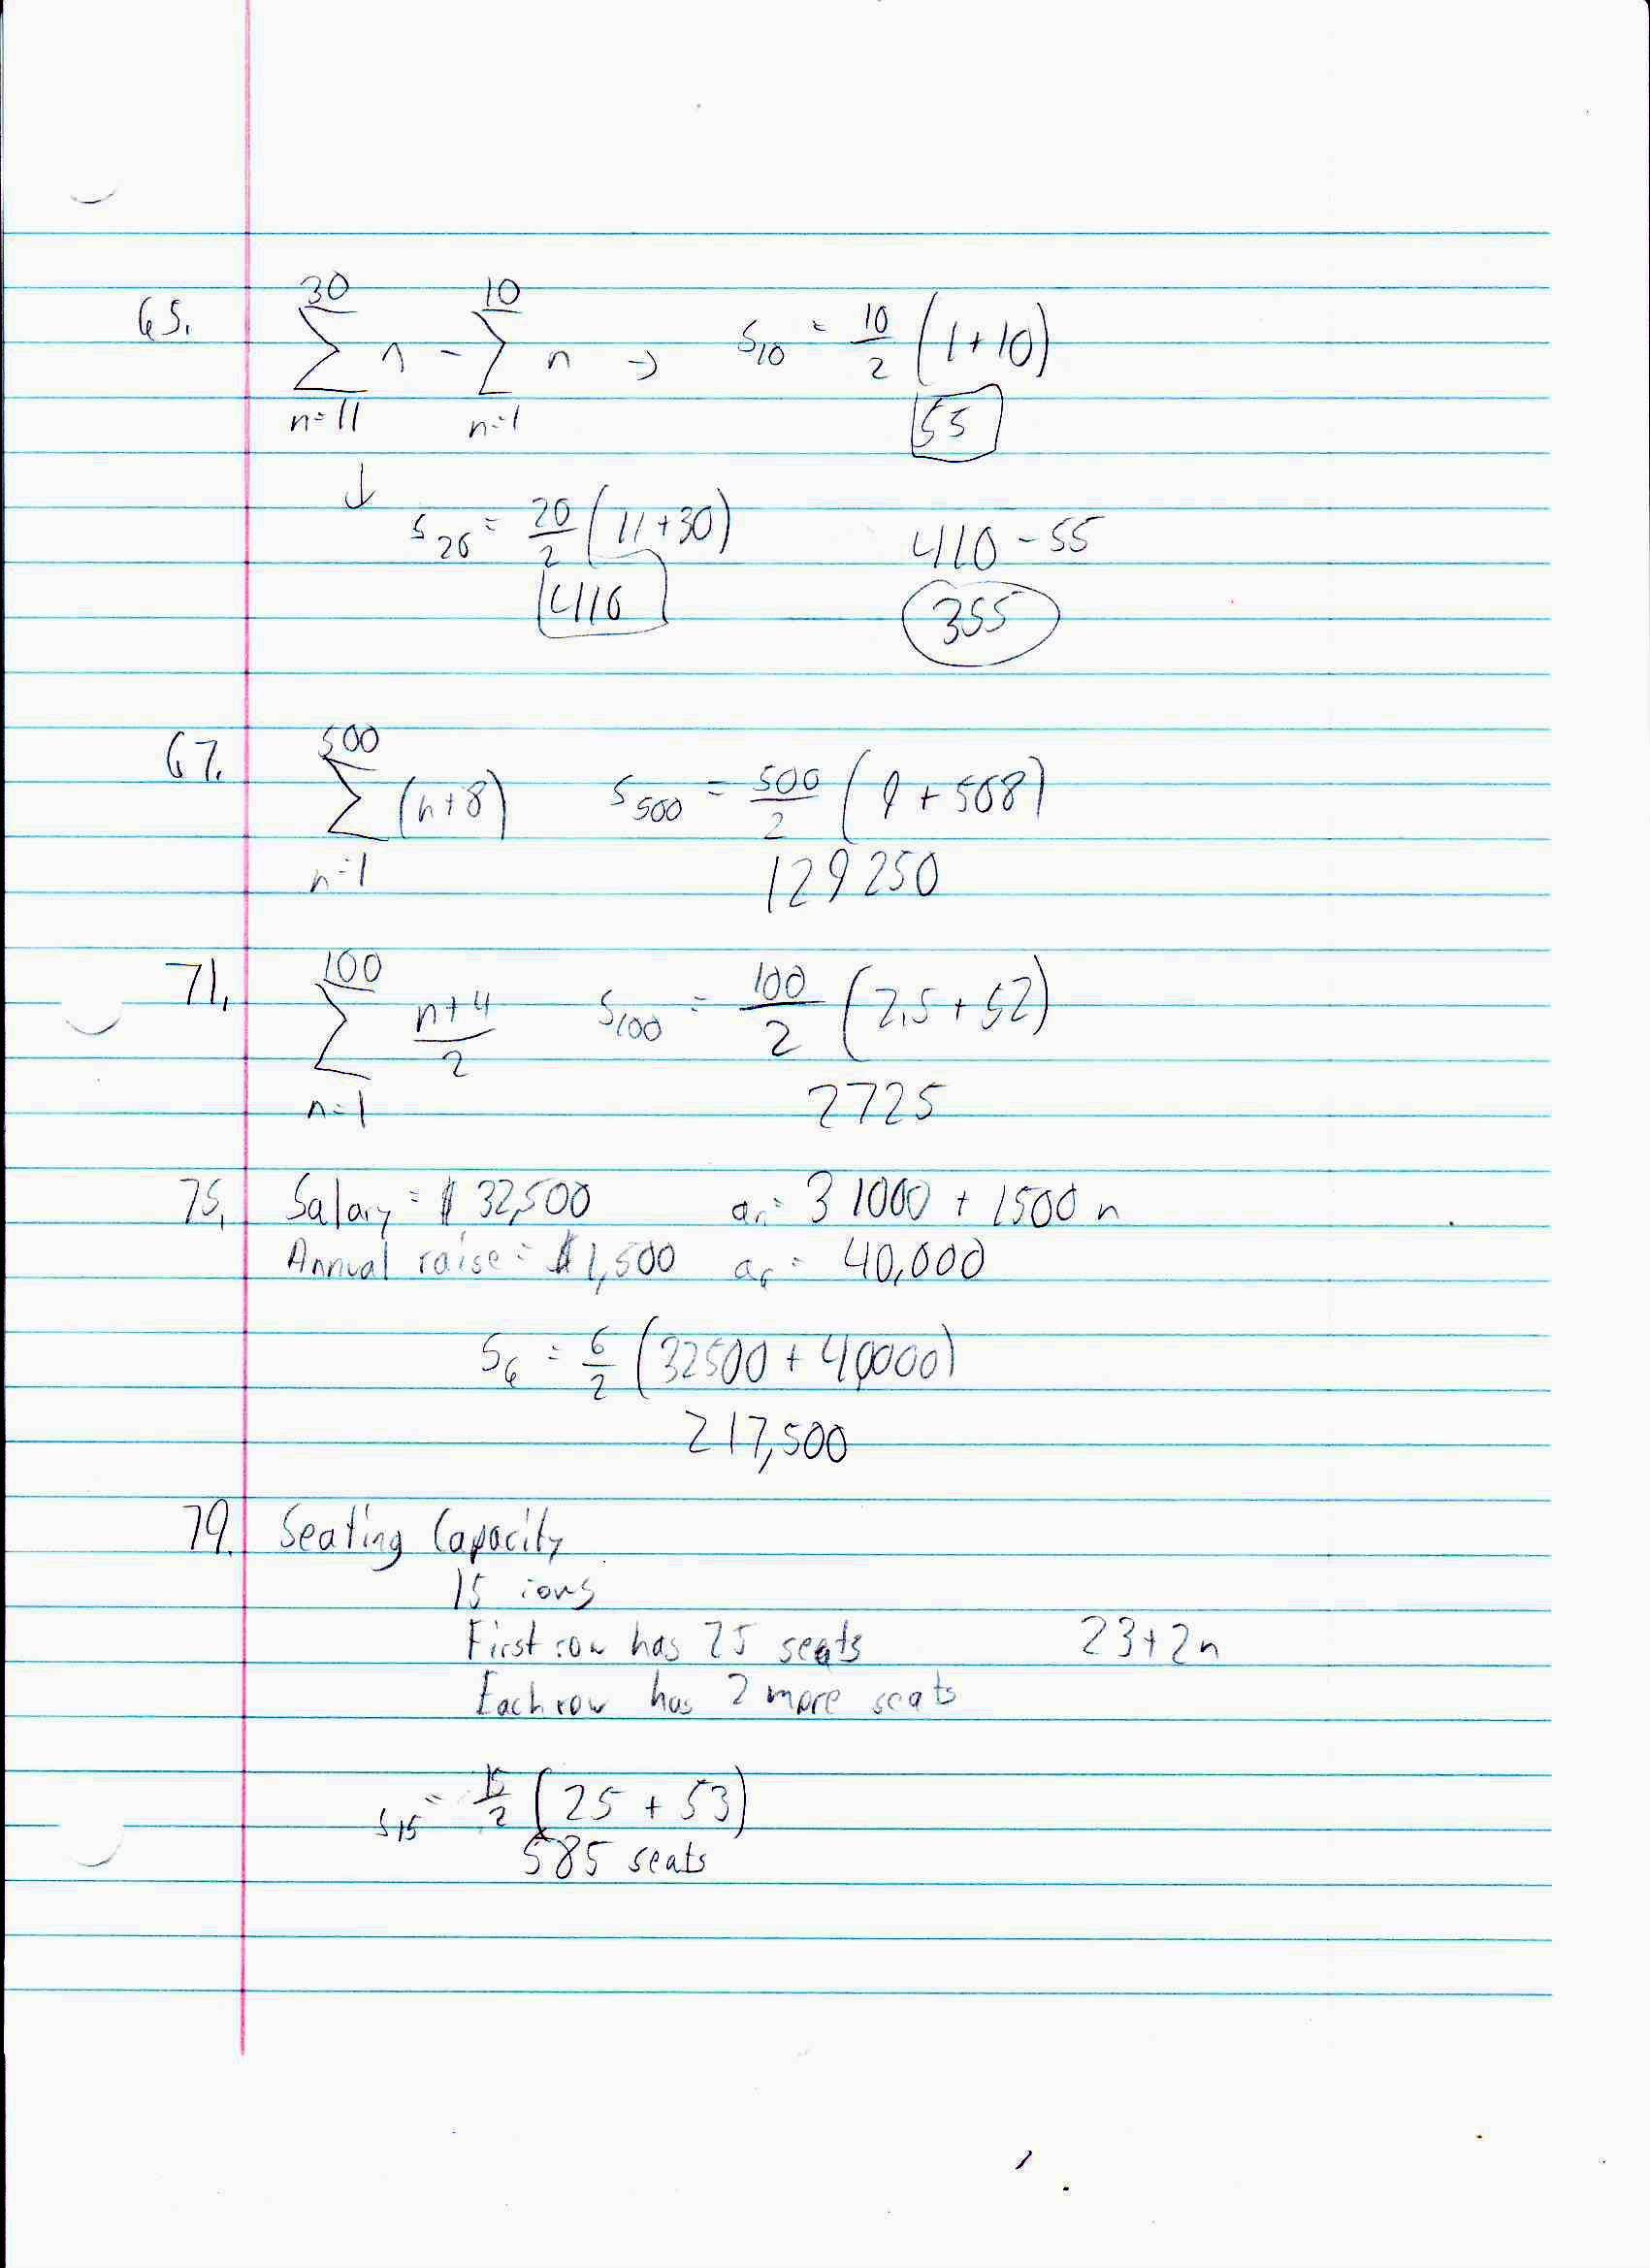 65. 30 Σ n=11 n - 10 Σ n=1 n → S10 = 10/2 (1+10)
55
↓ S20 = 20/2 (11+30) 410-55
410 355
67. 500 Σ n=1 (n+8) S500 = 500/2 (9+508)
129250
71. 100 Σ n=1 n+4/2 S100 = 100/2 (2.5+52)
2725
75. Salary = $32,500 an = 31000 + 1500n
Annual raise = $1,500 a6 = 40,000
S6 = 6/2 (32500 + 40000)
217,500
79. Seating Capacity
15 rows
First row has 25 seats 23+2n
Each row has 2 more seats
S15 = 15/2 (25 + 53)
585 seats